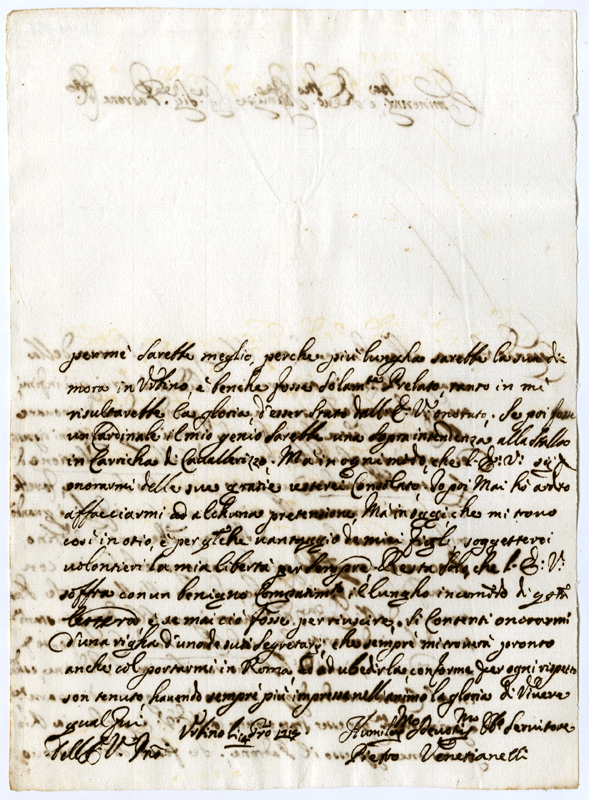 per me sarette meglio, perche più lungha sarette la sua di
mora in Vrbino e benche fosse solam.te Prelato tanto in me
risultarette la gloria, d'esser stato dall'E: V: onorato, Se poi fosse
un Cardinale il mio genio sarette una sopra intendenza alla stalla
in Caricha di Cauallerizzo. Ma in ogni modo, che l'E: V:
onorarmi delle sue gratie resterei Consolato, Io poi Mai hò ardito
affacciarmi ad alchuna pretensione, Ma in oggi, che mi trouo
così in otio, e per qlche uantaggio de miei figli soggetterei
volontieri la mia libertà per sempre. Resta solo, che l'E: V:
soffra con un benigno Compatim.to il lungho incomodo di
lettera e se mai ciò fosse per riuscire, si Contenti onorarmi
d'una righa d'uno de suoi segretarj, che sempre mi trouerà pronto
anche col portarmi in Roma ad ubedirla conforme per ogni rispetto
son tenuto, hauendo sempre più impresso nell'animo la gloria di Viuere
qual qui
Vrbino li
Humiliss.mo Deuotiss.mo Obb.mo Seruitore
Dell'E: V:
Pietro Venetianelli